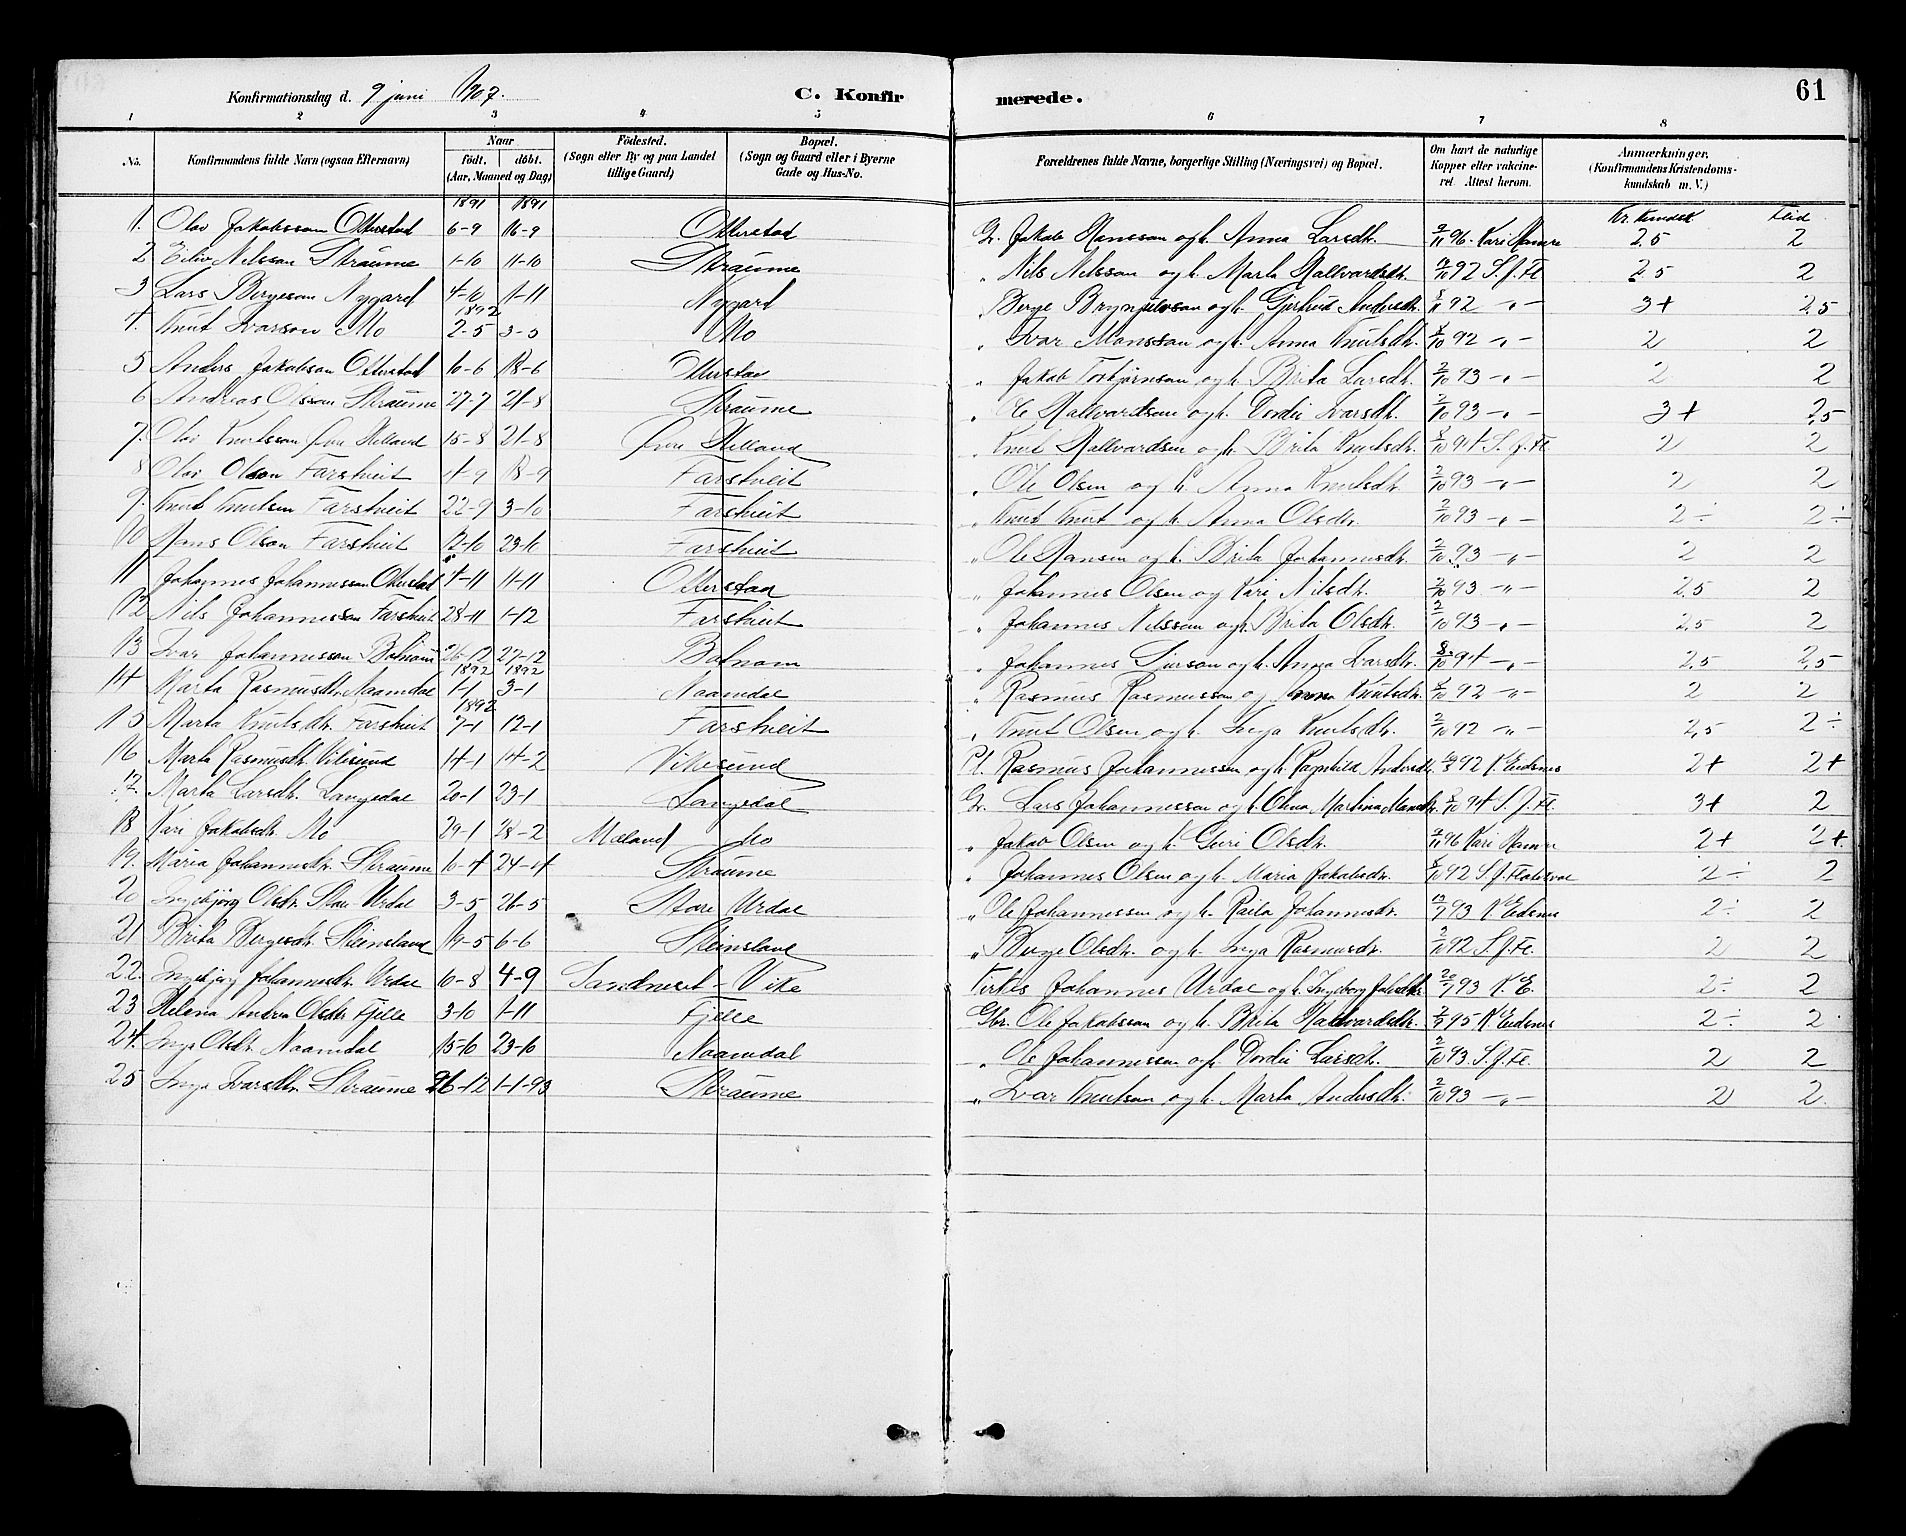 61
Konfirmationsdag d. 9 juni 1907. C. Konfirmerede.
1 2 3 4 5 6 7 8
No. Konfirmandens fulde Navn (ogsaa Efternavn) Naar født. døbt. (Aar, Maaned og Dag) Fødested. (Sogn eller By og paa Landet tillige Gaard) Bopæl. (Sogn og Gaard eller i Byerne Gade og Hus-No. Forældrenes fulde Navne, borgerlige Stilling (Næringsvei) og Bopæl. Om havt de naturlige Kopper eller vakcineret. Attest herom. Anmærkninger, (Konfirmandens Kristendomskundskab m. V.)
1891 1891 Kr. Kundsk Flid
1. Olav Jakobsson Otterstad 6-9 16-9 Otterstad G. Jakob Hansson og h. Anna Larsdtr. 2/11 96. Kari Hamre 2,5 2
2 Eiliv Nilsson Straume 1-10 11-10 Straume " Nils Nilsson og h. Marta Hallvardsdtr. 92 S.J.Fl 2,5 2
3 Lars Bergeson Nygard 4-10 1-11 Nygard " Berge Brynjulvsson og h. Gjertrud Andersdtr. 92 -"- 3+ 2,5
1892
4. Knut Ivarson Mo 2-5 3-5 Mo " Ivar Monsson og h. Anna Knutsdtr. 92 -"- 2 2
5 Anders Jakobson Otterstad 10-6 18-6 Otterstad " Jakob Torbjørnson og h. Brita Larsdtr. 2/10 93 -"- 2 2
6 Andreas Olsson Straume 27-7 21-8 Straume " Ole Hallvardsen og h. Dordei Ivarsdtr. 2/10 93 -"- 3+ 2,5
7. Olav Knutsson Øvre Helland 15-8 21-8 Øvre Helland " Knut Hallvardsen og h. Brita Knutsdtr. 8/10 94 S.J.Fl 2 2
8 Olav Olson Farstveit 4-9 18-9 Farstveit " Ole Olsen og h. Anna Knutsdtr. 2/10 93 -"- 2 2
9. Knut Knutsen Farstveit 22-9 3-10 Farstveit " Knut Knut og h. Anna Olsdtr. 2/10 93 -"- 2÷ 2÷
10 Hans Olson Farstveit 12-10 23-10 Farstveit " Ole Hansen og h. Brita Johannesdtr. 2/10 93 -"- 2 2
11 Johannes Johannesson Otterstad 4-11 11-11 Otterstad " Johannes Olsen og Kari Nilsdtr. 2/10 93 -"- 2,5 2
12 Nils Johannesson Farstveit 28-11 1-12 Farstveit " Johannes Nilsson og h. Brita Olsdtr. 2/10 93 -"- 2,5 2
13 Ivar Johannesson 26-12 27-12 " Johannes og h. Anna Ivarsdtr. 8/10 94 -"- 2,5 2,5
1892 1892
14 Marta Rasmusdtr. Naamdal 1-1 3-1 Naamdal " Rasmus Rasmusson og Anna Knutsdtr. 92 -"- 2 2
1892
15 Marta Knutsdtr. Farstveit 7-1 12-1 Farstveit " Knut Olsen og h. Inga Knutsdtr. 2/10 92 -"- 2,5 2÷
16 Marta Rasmusdtr. Vikesund 14-1 14-2 Vikesund Pl. Rasmus Johannessen og h. Ragnhild Andersdtr. 92 K. Eidsnes 2+ 2+
17. Marta Larsdtr. Langedal 20-1 23-1 Langedal G. Lars Johannessen og h. Olina Martina Monsdtr. 94 S.J.Fl. 3+ 2
18 Kari Jakobsdtr. Mo 29-1 28-2 Mæland Mo " Jakob Olsen og h. Guri Olsdtr. 2/11 96 Kari Hamre 2+ 2+
19. Maria Johannesdtr. Straume 10-4 24-4 Straume " Johannes Olsen og h. Maria Jakobsdtr. 92 S.J. Flatekval 2÷ 2
20 Ingebjørg Olsdr. Store Urdal 3-5 26-5 Store Urdal " Ole Johannessen og h. Raila Johannesdtr. 93 K. Eidsnes 2÷ 2
21 Brita Bergesdtr. Steinsland 19-5 6-6 Steinsland " Berge Olsdtr. og h. Inga Rasmusdtr. 92 S.J.Fl. 2 2
22. Ingebjørg Johannesdtr. Urdal 10-8 4-9 Sandneset - Vike Kirkes. Johannes Urdal og h. Ingeborg 93 K.E. 2÷ 2
23 Helena Andrea Olsdtr Fjelle 3-10 1-11 Fjelle Gbr. Ole Jakobsson og h. Brita Hallvardsdtr. 95 K. Eidsnes 2÷ 2
24. Inga Olsdtr. Naamdal 15-10 23-10 Naamdal " Ole Johannessen og h. Dordei Larsdtr. 2/10 93. S.J.Fl. 2 2
25 Inga Ivarsdtr. Straume 26-12 1-1-93 Straume " Ivar Knutson og h. Marta Andersdtr. 2/10 93 -"- 2 2.